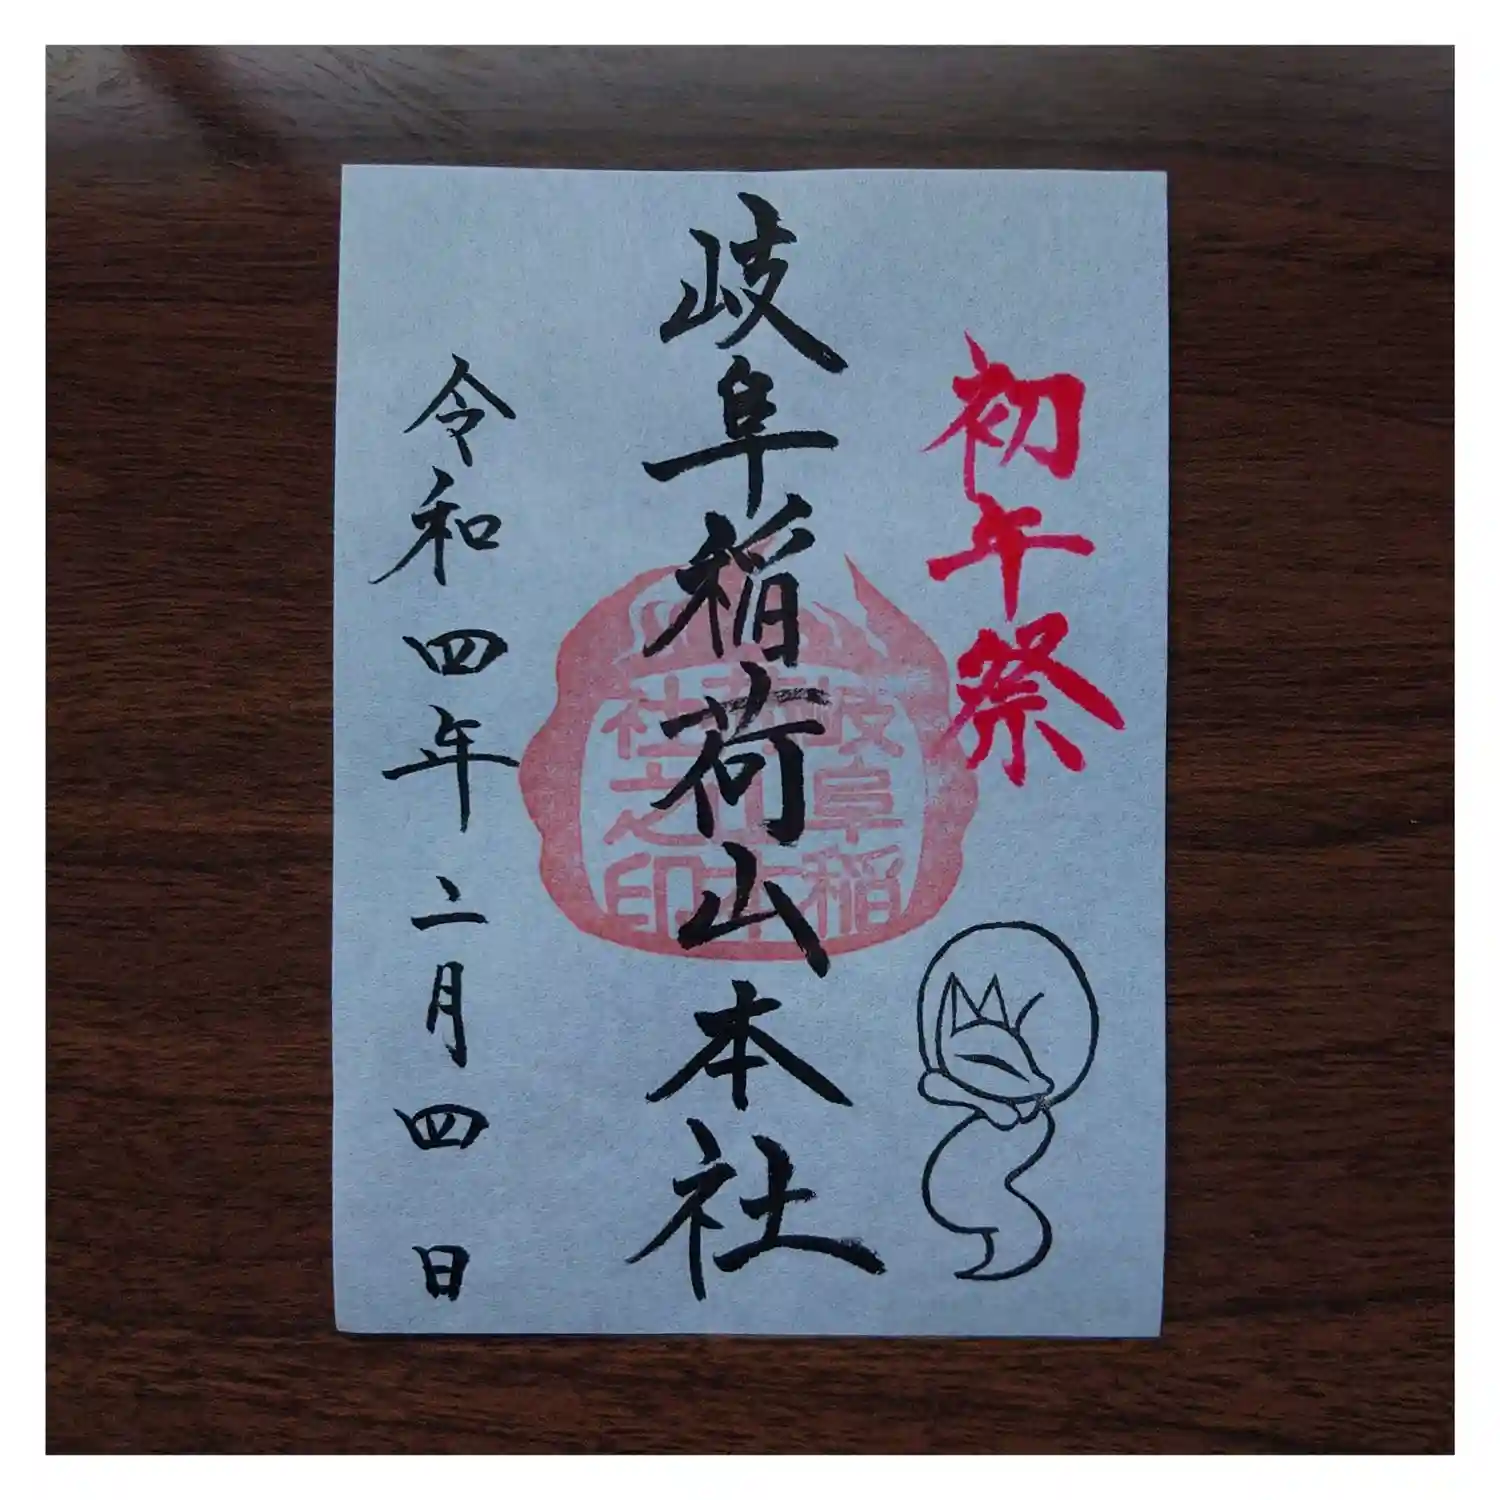 初午祭
岐阜稲荷山本社
岐阜稲
荷山本
社之印
令和四年二月四日